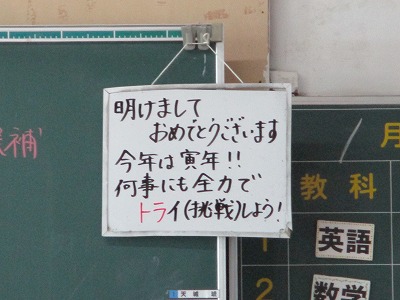 明けまして
おめでとうございます
今年は寅年!!
何事にも全力で
トライ(挑戦)しよう!
候補
月
教科
1
英語
2
数学